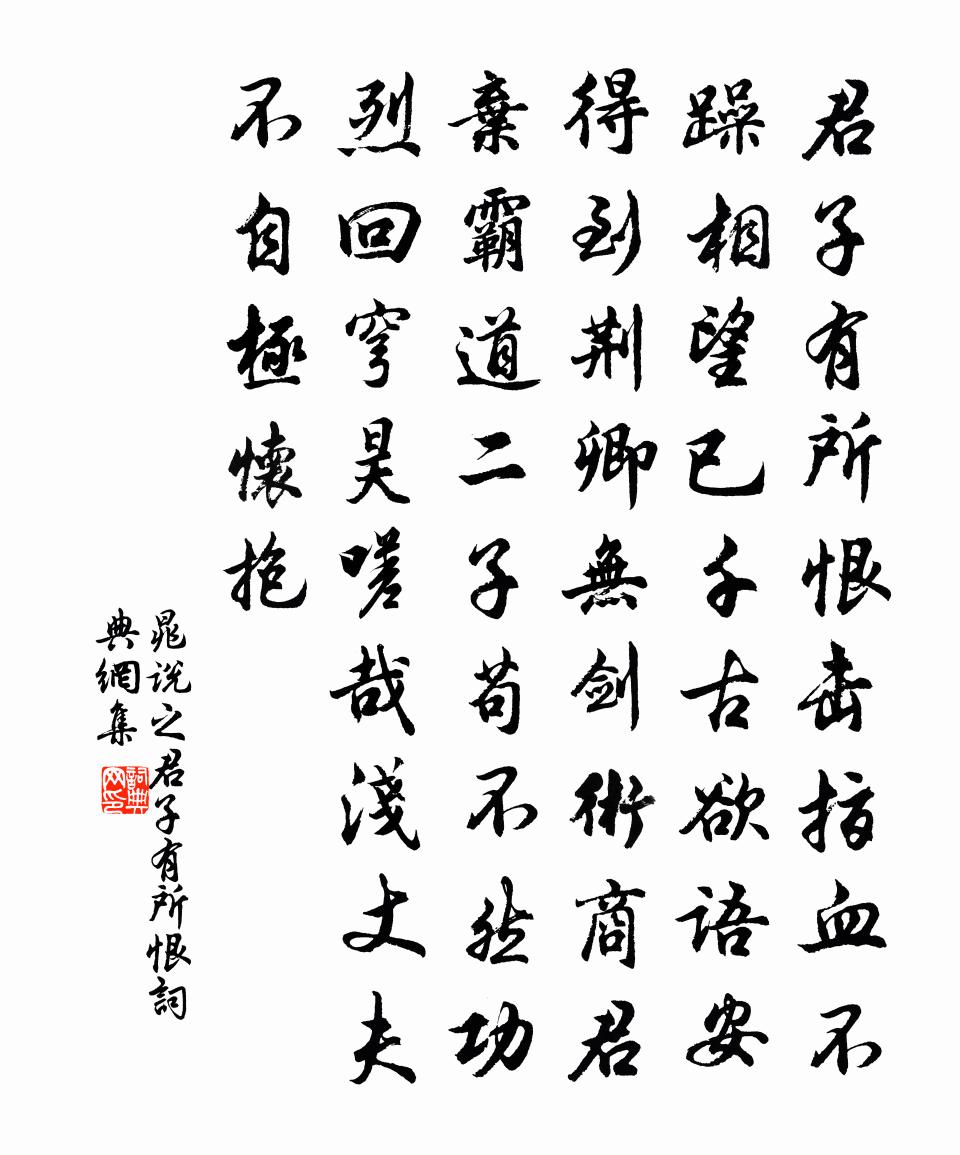 君子有所恨击指血不
躁相望已千古欲語安
得到荆卿無剑術商君
棄霸道二子苟不然功
烈回穹昊嗟哉淺丈夫
不自極懷抱
晁说之君子有所恨詞
典網集
詞典
网印